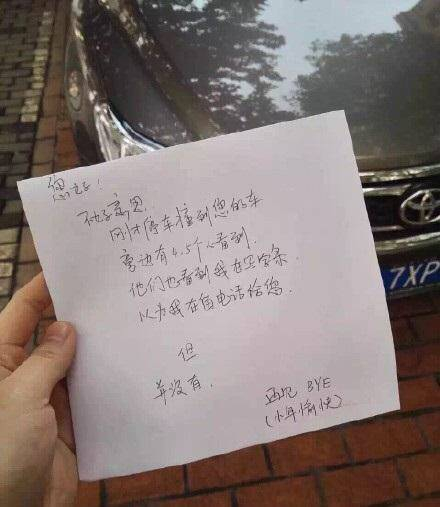 您好!
不好意思,
刚才停车撞到您的车
旁边有4.5个人看到.
他们也看到我在写字条
以为我在留电话给您.
但
并没有.
再见 BYE
(小年愉快)
TOYOTA
7XP